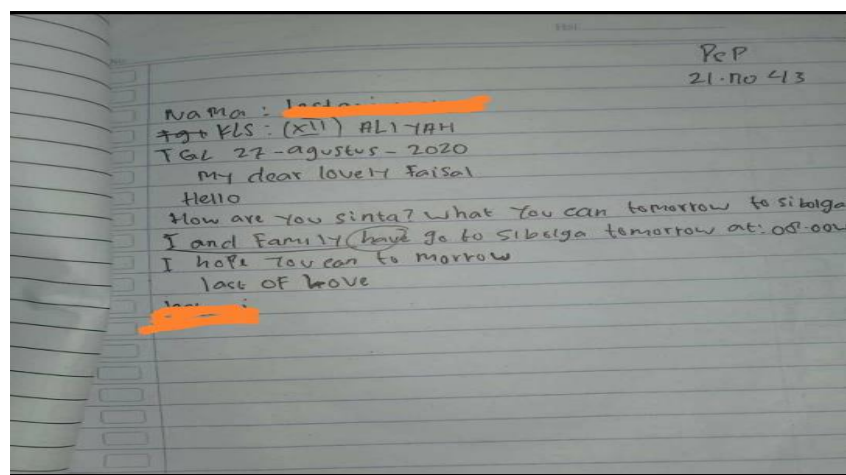 PcP
21.no 43
Nama :
KLS : (XII) ALIYAH
TGL 27-agustus-2020
My dear lovely Faisal
Hello
How are you sinta? what you can tomorrow to sibolga
I and Family have go to sibolga tomorrow at: 08.00
I hope you can to morrow
last OF Love